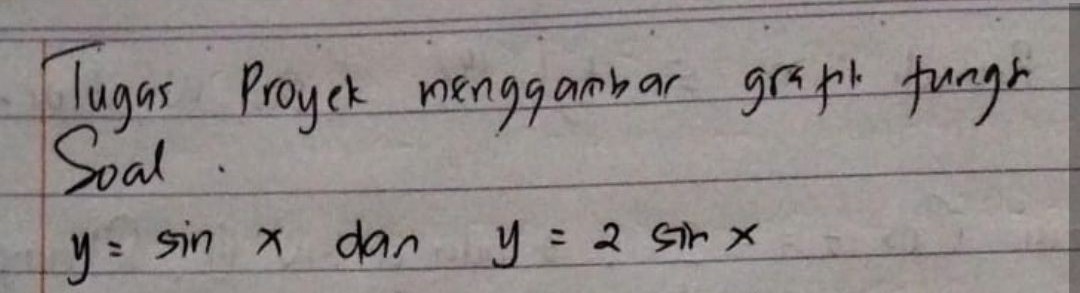 Tugas Proyek menggambar grafik fungsi
Soal .
y = sin x dan y = 2 sin x